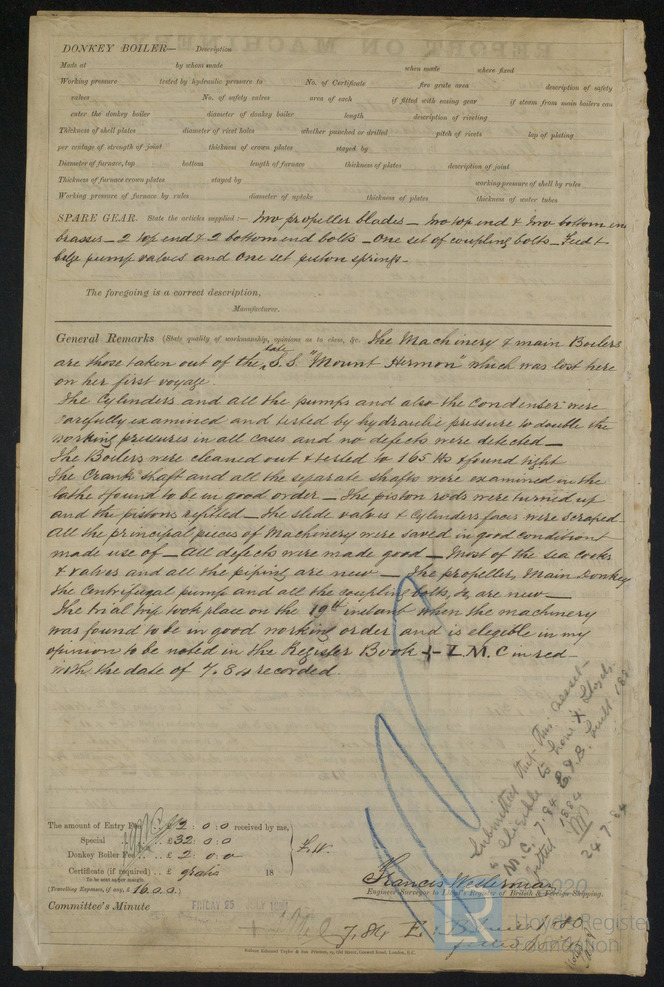 DONKEY BOILER— Description
Made at by whom made when made where fixed
Working pressure tested by hydraulic pressure to No. of Certificate fire grate area description of safety
valves No. of safety valves area of each if fitted with easing gear if steam from main boilers can
enter the donkey boiler diameter of donkey boiler length description of riveting
Thickness of shell plates diameter of rivet holes whether punched or drilled pitch of rivets lap of plating
per centage of strength of joint thickness of crown plates stayed by
Diameter of furnace, top bottom length of furnace thickness of plates description of joint
Thickness of furnace crown plates stayed by working pressure of shell by rules
Working pressure of furnace by rules diameter of uptake thickness of plates thickness of water tubes
SPARE GEAR. State the articles supplied:— Two propeller blades — two top end & two bottom end
brasses — 2 top end & 2 bottom end bolts — One set of coupling bolts — Feed &
bilge pump valves and One set piston springs —
The foregoing is a correct description,
Manufacturer.
General Remarks (State quality of workmanship, opinions as to class, &c. The Machinery & main Boilers
are those taken out of the late S.S. "Mount Hermon" which was lost here
on her first voyage.
The Cylinders and all the pumps and also the Condenser were
carefully examined and tested by hydraulic pressure to double the
working pressures in all cases and no defects were detected —
The Boilers were cleaned out & tested to 165 lbs & found tight
The Crank shaft and all the separate shafts were examined in the
lathe & found to be in good order — The piston rods were turned up
and the pistons refitted — The slide valves & Cylinders faces were scraped —
All the principal pieces of Machinery were saved in good condition &
made use of — All defects were made good — Most of the sea cocks
& valves and all the piping are new — The propeller, Main Donkey
the Centrifugal pump and all the coupling bolts, &c, are new —
The trial trip took place on the 19th instant when the machinery
was found to be in good working order and is elegible in my
opinion to be noted in the Register Book + L.M.C in red
with the date of 7.84 recorded.
Submitted that this vessel
is eligible to have + Lloyds
M.C. 7.84 & N.B. built 188
fitted 1884
24.7.84
The amount of Entry Fee £ 2 : 0 : 0 received by me,
Special £ 32 : 0 : 0
Donkey Boiler Fee £ 2 : 0 : 0
Certificate (if required) £ gratis 18
To be sent as per margin.
(Travelling Expenses, if any, £ 16.0.0.)
F.W.
Francis Westerman
Engineer Surveyor to Lloyd's Register of British & Foreign Shipping.
Committee's Minute
FRIDAY 25 JULY 1884
7.84
2020
Lloyd's Register
Foundation